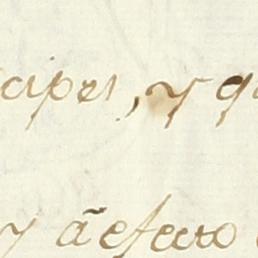 cipes, y q
y ã efecto